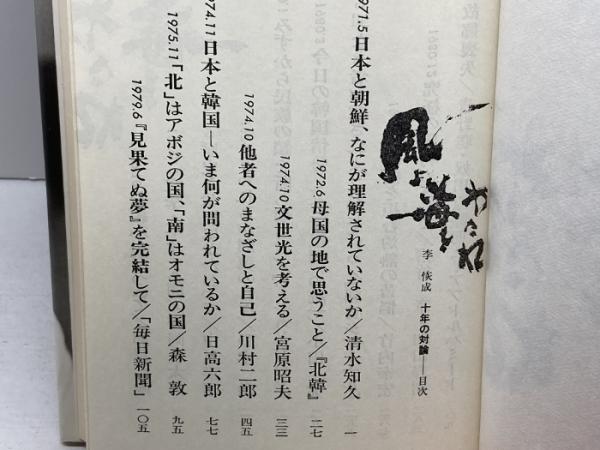 風よ海を
わたれ
李 恢成 十年の対論——目次
1971.5 日本と朝鮮、なにが理解されていないか/清水知久 一
1972.6 母国の地で思うこと/『北韓』 二七
1974.10 文世光を考える/宮原昭夫 三三
1974.10 他者へのまなざしと自己/川村二郎 四五
1974.11 日本と韓国—いま何が問われているか/日高六郎 七七
1975.11 「北」はアボジの国、「南」はオモニの国/森 敦 九五
1979.6 『見果てぬ夢』を完結して/「毎日新聞」 一〇五